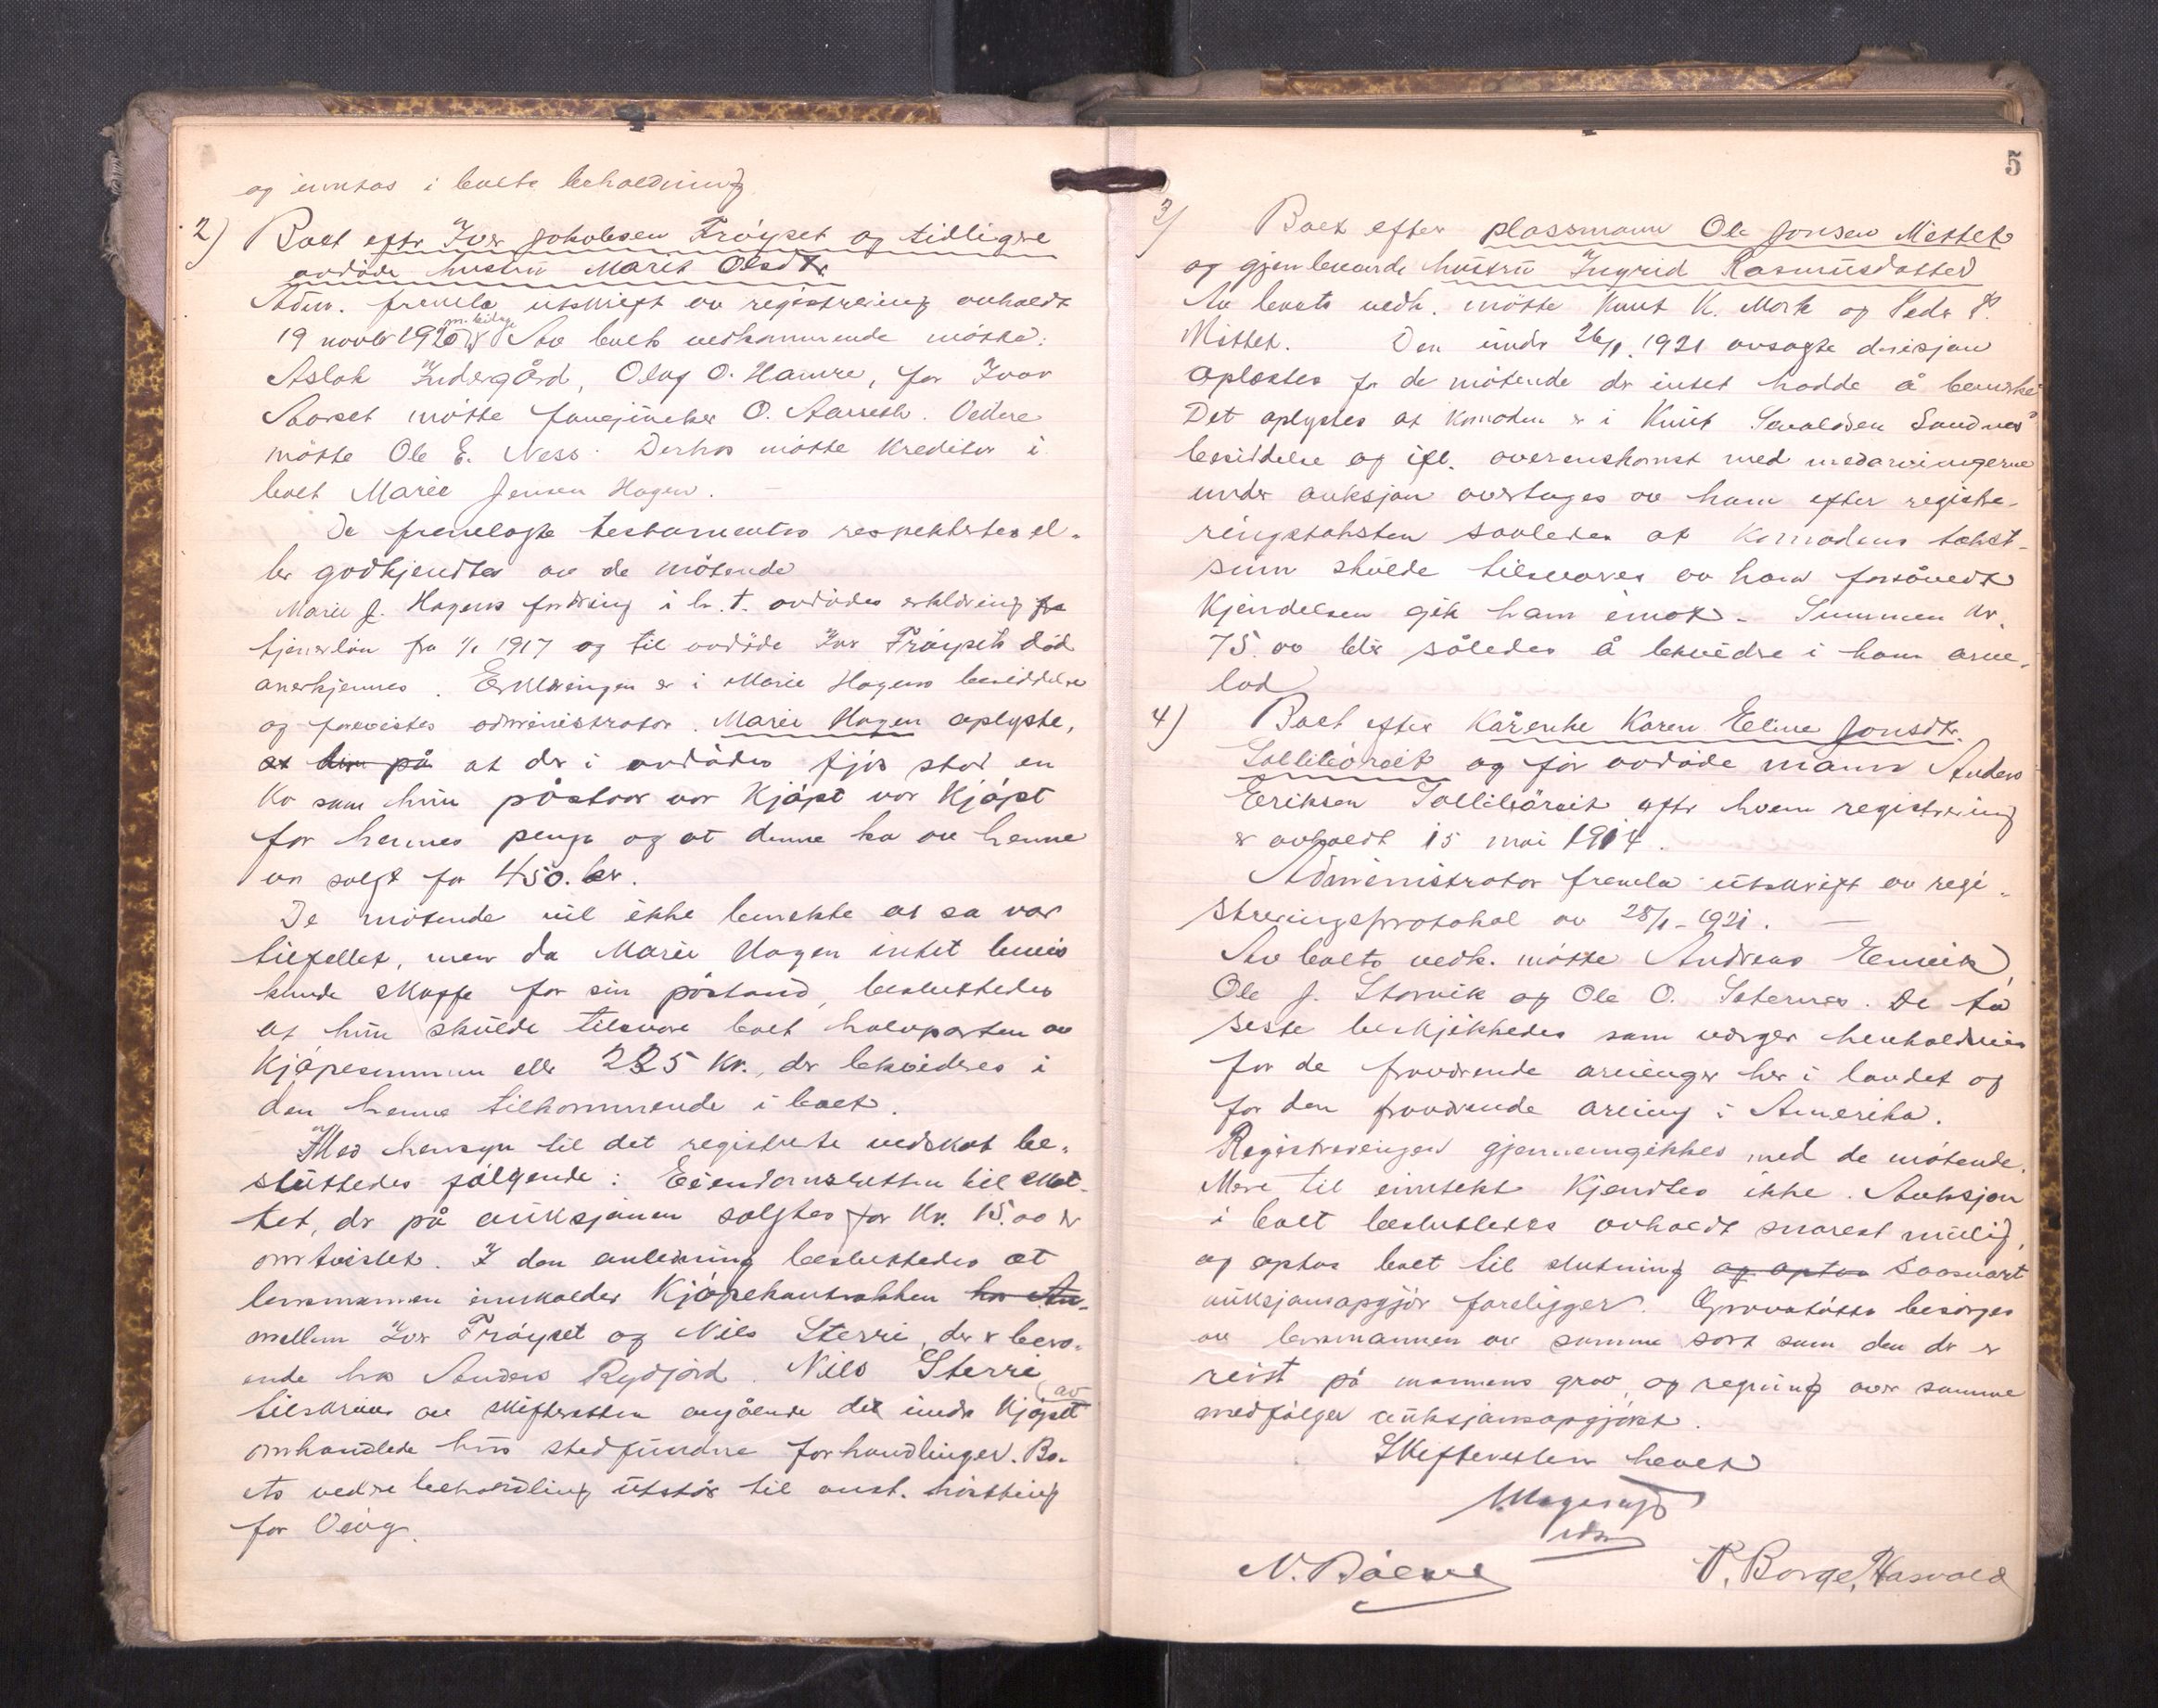 og inntas i boets beholdning
2) Boet efter Iver Jakobsen Frøyset og tidligere
avdøde hustru Marit Olsdtr.
Adm. fremla utskrift av registrering avholdt
19 novbr 1920 m. bilag Av boets vedkommende møtte:
Aslak Indergård, Oluf O. Hamre, for Ivar
Aarset møtte O. Aarseth. Videre
møtte Ole E. Ness. Derhos møtte kreditor i
boet Marie Jensen Hagen. —
De fremlagte testamenter respektertes el-
ler godkjendtes av de møtende
Marie J. Hagens fordring i h. t. avdødes erklæring fra
tjenerløn fra 1/1 1917 og til avdøde Iver Frøysets død
anerkjennes. Erklæringen er i Marie Hagens besiddelse
og forevistes administrator. Marie Hagen oplyste,
at hun på at der i avdødes fjøs stod en
ku som hun påstaar var kjøpt var kjøpt
for hennes penge og at denne ku av henne
var solgt for 450. kr.
De møtende vil ikke benekte at sa var
tilfellet, men da Marie Hagen intet bevis
kunde skaffe for sin påstand, besluttedes
at hun skulde tilsvare boet halvparten av
kjøpesummen eller 225 kr., der lekvideres i
den henne tilkommende i boet.
Med hensyn til det registrerte vedskot be-
sluttedes følgende: Eiendomsretten til skot-
tet, der på auksjonen solgtes for kr. 15.00 er
omtvistet. I den anledning besluttedes at
lensmannen innkalder kjøpekontrakten hos An-
mellem Iver Frøyset og Nils Sterri, der er bero-
ende hos Anders Rydjord. Nils Sterri
tilskrives av skifteretten angående det under kjøpet av
omhandlede hus stedfundne forhandlinger. Bo-
ets vedre behandling utstår til aust. høsting
for Øvrig.
5
3) Boet efter plassmann Ole Jonsen Mittet
og gjenlevende hustru Ingrid Rasmusdatter
Av boets vedk. møtte Knut K. Mork og Peder P.
Mittet. Den under 26/1. 1921 avsagte desisjon
oplæstes for de møtende der intet hadde å bemerke
Det oplystes at komoden er i Knut Sevaldsen Sandnes'
besiddelse og ifl. overenskomst med medarvingerne
under auksjon overtages av ham efter registre-
ringstaksten saaledes at komodens takst-
sum skulde tilsvares av ham forsåvidt
kjendelsen gik ham imot. Summen kr.
75.00 blir således å lekvidre i hans arve-
lod
4) Boet efter kårenke Karen Eline Jonsdtr.
og før avdøde mann Anders
Eriksen efter hvem registrering
er avholdt 15 mai 1914.
Administrator fremla utskrift av regi-
streringsprotokol av 28/1-1921. —
Av boets vedk. møtte Andreas
Ole J. Storvik og Ole O. Seternes. De to
siste beskjikkedes som verger henholdsvis
for de fraværende arvinger her i landet og
for den fraværende arving i Amerika.
Registreringen gjennemgikkes med de møtende.
Mere til inntekt kjendtes ikke. Auksjon
i boet besluttedes avholdt snarest mulig,
og optas boet til slutning og optas saasnart
auksjonsopgjør foreligger. Gravstøtte besørges
av lensmannen av samme sort som den der er
reist på mannens grav, og regning over samme
medfølger auksjonsopgjøret.
Skifteretten hevet
P. Borge, Hasvold